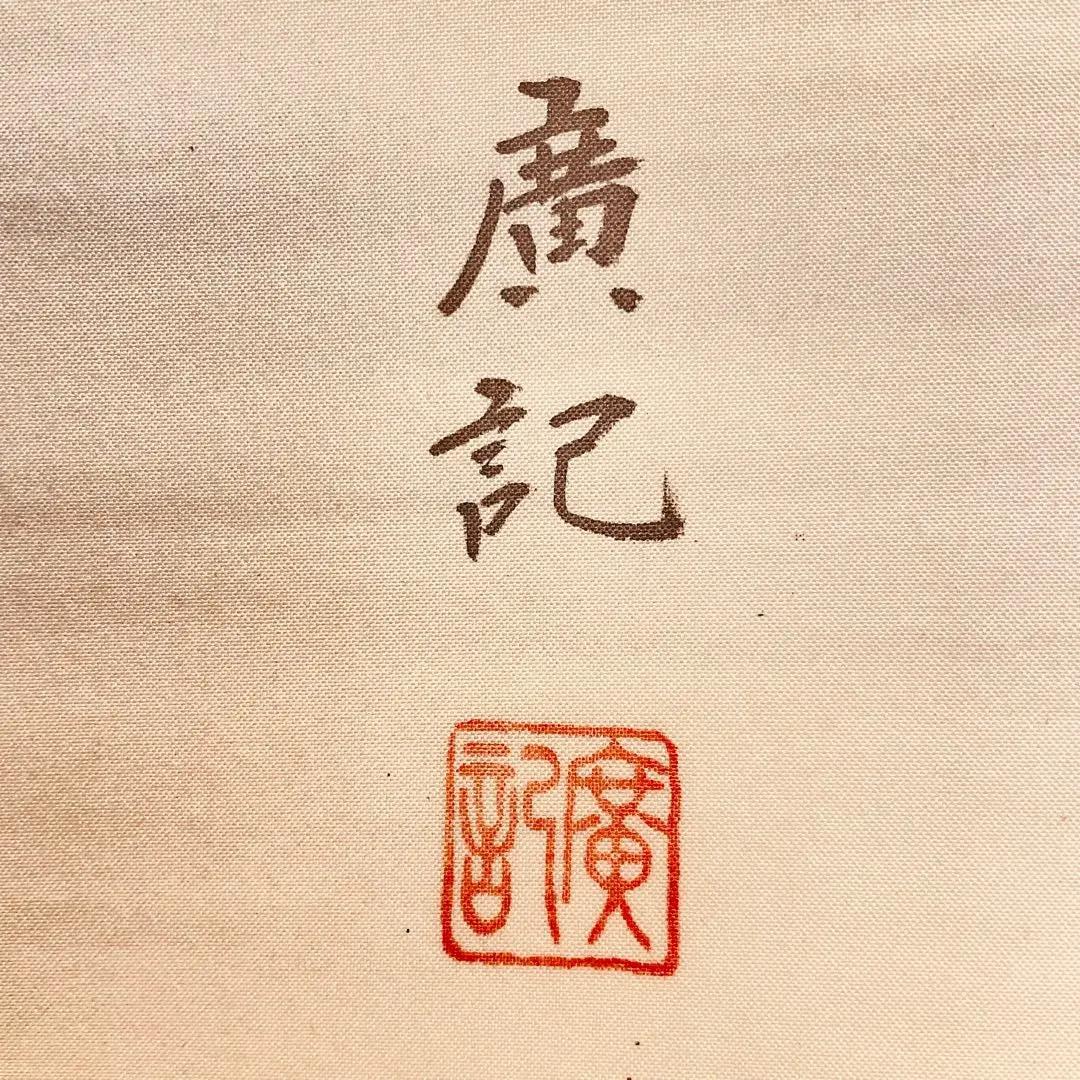 廣記
廣記